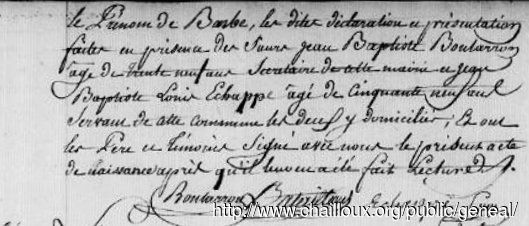 le Prénom de Barbe, les dites déclaration et présentation
faites en présence des Sieurs Jean Baptiste Bontarron
agé de trente neuf ans Secrétaire de cette mairie et Jean
Baptiste Louis Echappe agé de Cinquante neuf ans
Servant de cette commune les deux y domiciliés, Et ont
les Pere et témoins Signé avec nous le présent acte
de naissance après qu'il leur en a été fait Lecture
Bontarron
http://www.chailloux.org/public/geneal/